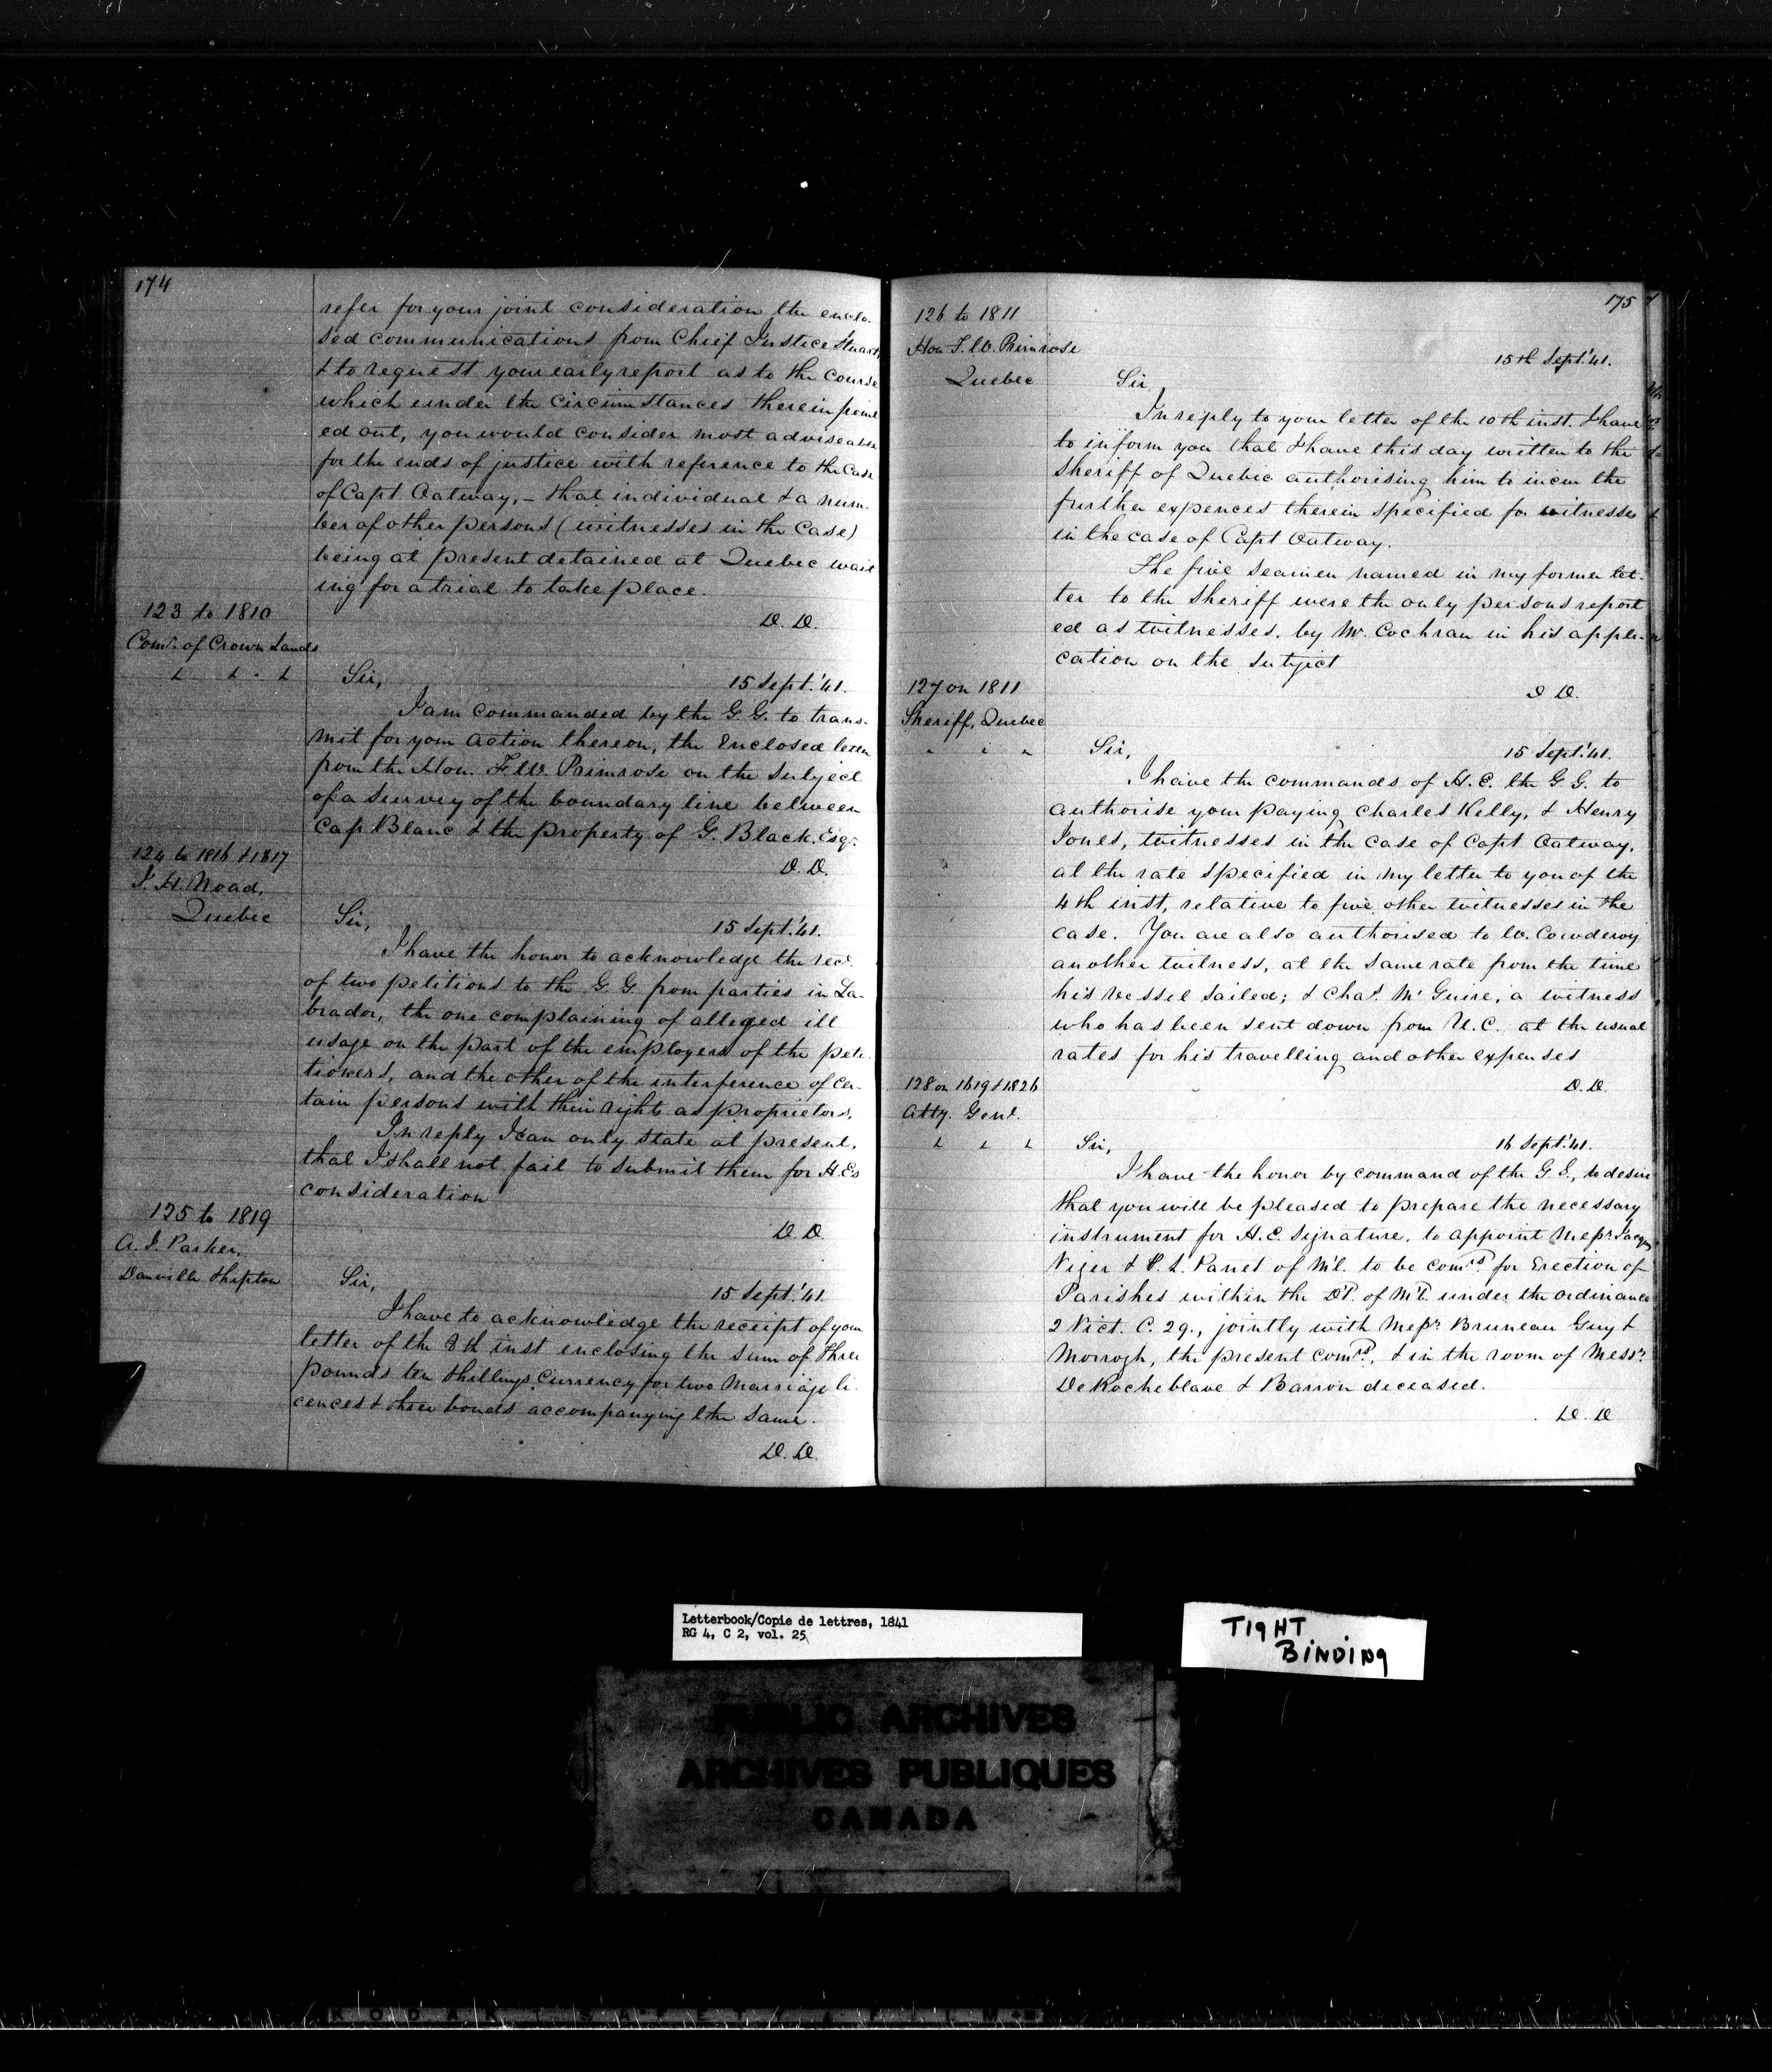 174
refer for your joint consideration the enclo-
sed communications from Chief Justice Stuart
& to request your early report as to the course
which under the circumstances therein point
ed out, you would consider most adviseable
for the ends of justice with reference to the Case
of Capt Oatway, - that individual & a num-
ber of other persons (witnesses in the Case)
being at present detained at Quebec wait
ing for a trial to take place.
D. D.
123 to 1810
Comr. of Crown Lands
Sir,
15 Sept. '41.
I am commanded by the G. G. to trans-
mit for your action thereon, the Enclosed letter
from the Hon. F W. Primrose on the subject
of a Survey of the boundary line between
Cap Blanc & the property of G. Black. Esqr.
D. D.
124 to 1816 & 1817
J. H. Noad,
Quebec
Sir,
15 Sept. '41.
I have the honor to acknowledge the rect.
of two petitions to the G. G. from parties in La-
brador, the one complaining of alleged ill
usage on the part of the employers of the peti-
tioners, and the other of the interference of cer-
tain persons with their right as proprietors.
In reply I can only state at present,
that I shall not fail to submit them for H. Es
consideration
D. D
125 to 1819
A. J. Parker,
Danville Shipton
Sir,
15 Sept. '41.
I have to acknowledge the receipt of your
letter of the 8th inst enclosing the sum of three
pounds ten shillings Currency for two Marriage li-
cences & three bonds accompanying the same.
D. D.
175
126 to 1811
Hon F. W. Primrose
Quebec
15th Sept. '41.
Sir
In reply to your letter of the 10th inst. I have
to inform you that I have this day written to the
Sheriff of Quebec authorising him to incur the
further expences therein specified for witnesses
in the case of Capt Oatway.
The five seamen named in my former let-
ter to the Sheriff were the only persons report
ed as witnesses, by Mr. Cochran in his appli-
cation on the subject
D D.
127 on 1811
Sheriff, Quebec
Sir,
15 Sept. '41.
I have the commands of H. E. the G. G. to
authorise your paying Charles Kelly, & Henry
Jones, witnesses in the case of Capt Oatway,
at the rate specified in my letter to you of the
4th inst, relative to five other witnesses in the
case. You are also authorised to W. Cowderoy
another witness, at the same rate from the time
his vessel sailed; & Chas. McGuire, a witness
who has been sent down from U. C. at the usual
rates for his travelling and other expenses
D. D.
128 on 1619 & 1826
Atty. Genl.
Sir,
16 Sept. '41.
I have the honor by command of the G. G., to desire
that you will be pleased to prepare the necessary
instrument for H. E. signature, to appoint Messrs. Jacques
Viger & P. L. Panet of M'l. to be Comrs. for Erection of
Parishes within the Dt. of M'l. under the ordinance
2 Vict. C. 29., jointly with Messrs Bruneau Guy &
Morrogh, the present Comrs., & in the room of Messrs.
DeRocheblave & Barron deceased.
D. D
Letterbook/Copie de lettres, 1841
RG 4, C 2, vol. 25
TIGHT
BINDING
PUBLIC ARCHIVES
ARCHIVES PUBLIQUES
CANADA
KODAK SAFETY FILM